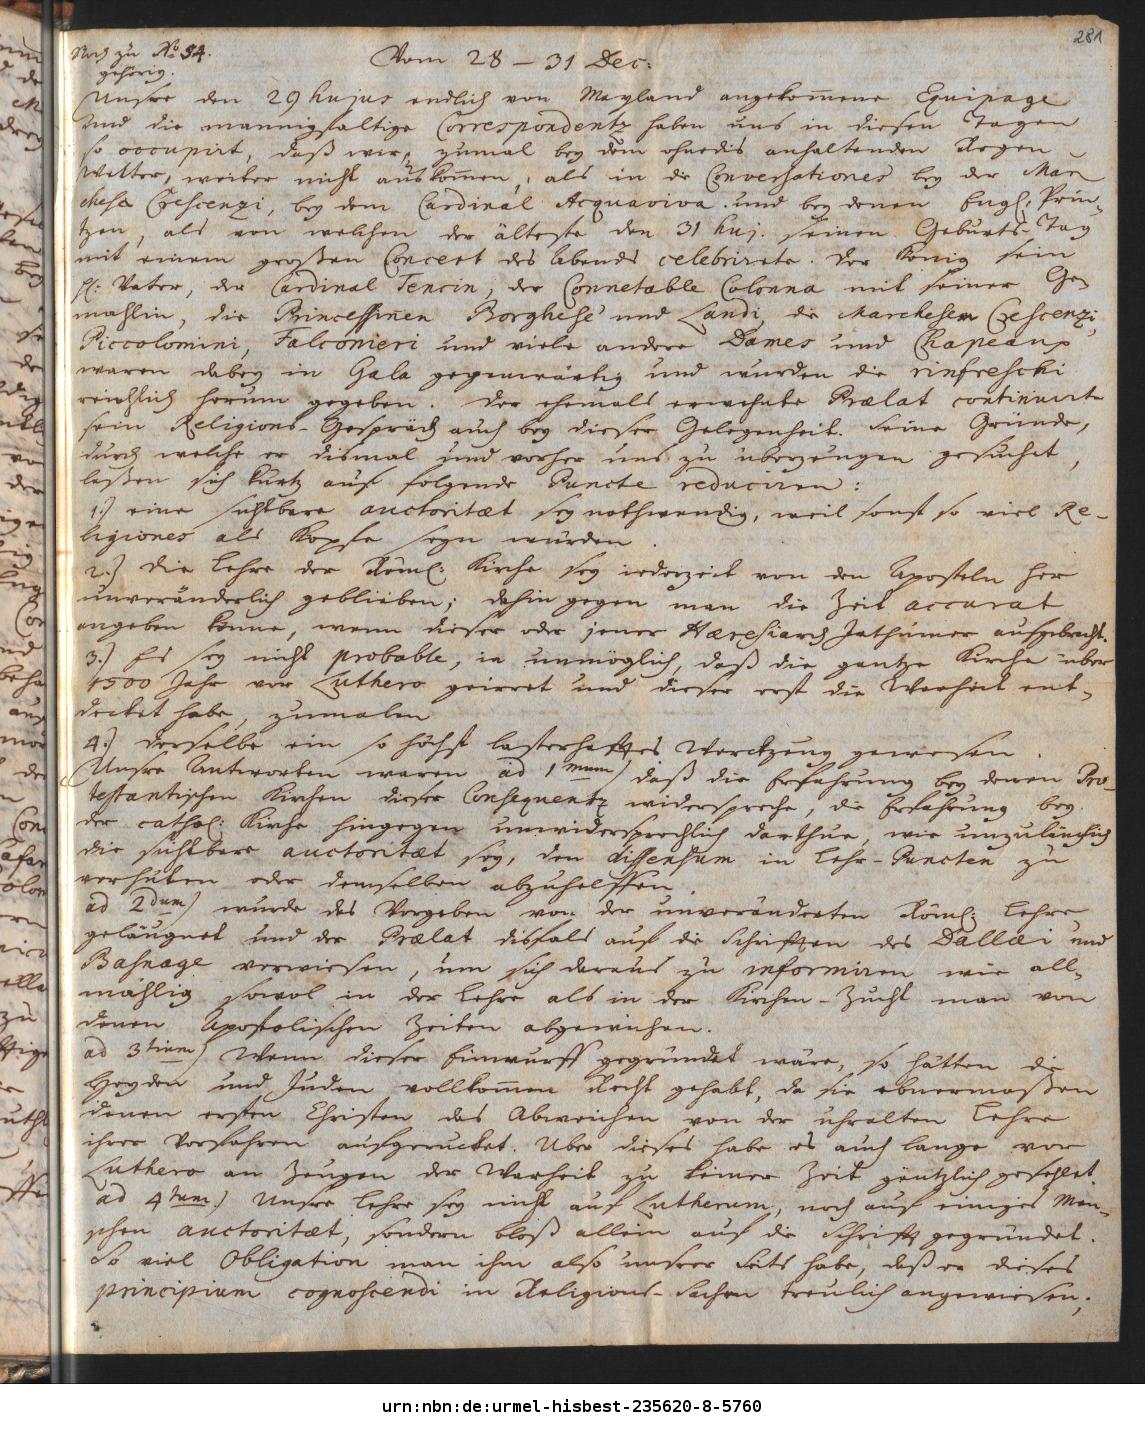 281
Noch zu No 54.
gehörig.
Vom 28 – 31 Dec:
Unsre den 29 hujus endlich von Mayland angekom̄ene Equipage
und die mannigfaltige Correspondentz haben uns in diesen Tagen
so occupirt, daß wir, zumal bey dem ohnedis anhaltenden Regen
Wetter, weiter nicht auskom̄en, als in die Conversationes bey der Mar
chesa Crescenzi, bey dem Cardinal Acquaviva und bey denen Engl. Prin-
tzen, als von welchen der älteste den 31 huj. seinen Geburts-Tag
mit einem großen Concert des Abends celebrirete. Der König sein
H: Vater, der Cardinal Tencin, der Connetable Colonna mit seiner Ge-
mahlin, die Princessin̄en Borghese und Landi, die Marchesen Crescenzi,
Piccolomini, Falconieri und viele andere Dames und Chapeaux
waren dabey in Gala gegenwärtig und wurden die rinfreschi
reichlich herum gegeben. Der ehemals erwehnte Prælat continuirte
sein Religions-Gespräch auch bey dieser Gelegenheit. Seine Gründe,
durch welche er dismal und vorher uns zu überzeugen gesucht,
laßen sich kurtz auf folgende Puncte reduciren:
1.) eine sichtbare auctoritæt sey nothwendig, weil sonst so viel Re-
ligiones als Köpfe seyn würden.
2.) Die Lehre der Röml: Kirche sey iederzeit von den Aposteln her
unveränderlich geblieben; dahin gegen man die Zeit accurat
angeben könne, wenn dieser oder jener Hæresiarch Irthümer aufgebracht.
3.) Es sey nicht probable, ia unmöglich, daß die gantze Kirche über
1500 Jahr vor Luthero geirret und dieser erst die Warheit ent-
decket habe, zumalen
4.) derselbe ein so höchst lasterhafftes Werckzeug gewesen.
Unsre Antworten waren ad 1mum) daß die Erfahrung bey denen Pro-
testantischen Kirchen dieser Consequentz widerspreche, die Erfahrung bey
der cathol: Kirche hingegen unwidersprechlich darthue, wie unzulänglich
die sichtbare auctoritæt sey, den dissensum in Lehr-Puncten zu
verhüten oder demselben abzuhelffen.
ad 2dum) wurde das Vorgeben von der unveränderten Röml: Lehre
geläugnet und der Prælat disfals auf die Schrifften des Dallæi und
Basnage verwiesen, um sich daraus zu informiren wie all-
mählig sowol in der Lehre als in der Kirchen-Zucht man von
denen Apostolischen Zeiten abgewichen.
ad 3tium) Wenn dieser Einwurff gegründet wäre, so hätten die
Heyden und Juden vollkom̄en Recht gehabt, da sie ebnermaßen
denen ersten Christen das Abweichen von der uhralten Lehre
ihrer Vorfahren aufgerucket. Uber dieses habe es auch lange vor
Luthero an Zeugen der Warheit zu keiner Zeit gäntzlich gefehlet.
ad 4tum.) Unsre Lehre sey nicht auf Lutherum, noch auf einiges Men-
schen auctoritæt, sondern bloß allein auf die Schrifft gegründet.
So viel Obligation man ihm also unsrer Seits habe, daß er dieses
principium cognoscendi in Religions-Sachen treulich angewiesen;
urn:nbn:de:urmel-hisbest-235620-8-5760